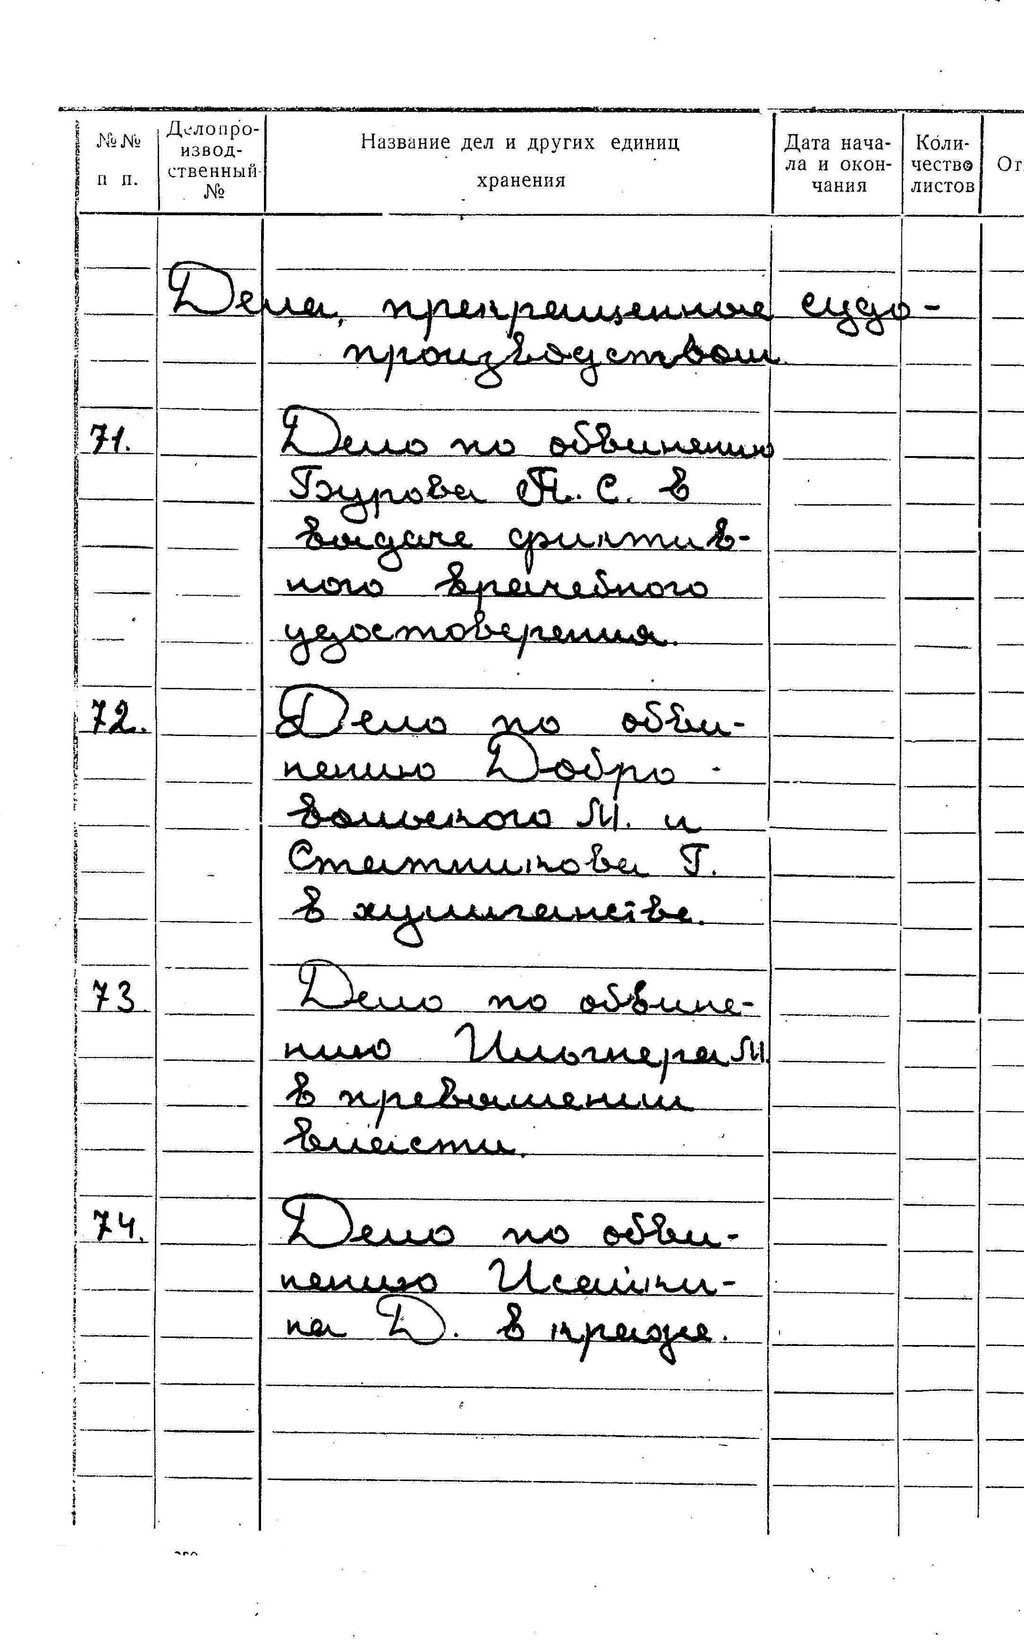 №№ п п.
Делопроизвод-ственный №
Название дел и других единиц
хранения
Дата нача-
ла и окон-
чания
Коли-
чество
листов
От
Дела, прекращенные судо-
производством.
71.
Дело по обвинению
Бурова П. С. в
выдаче фиктив-
ного врачебного
удостоверения.
72.
Дело по обви-
нению Добро-
вольского М. и
Статникова Г.
в хулиганстве.
73.
Дело по обвине-
нию Ильгнера М.
в превышении
власти.
74.
Дело по обви-
нению Исайки-
на Д. в краже.